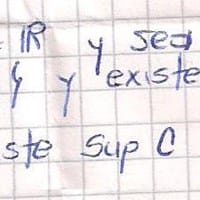 IR y sea
y existe
ste Sup C